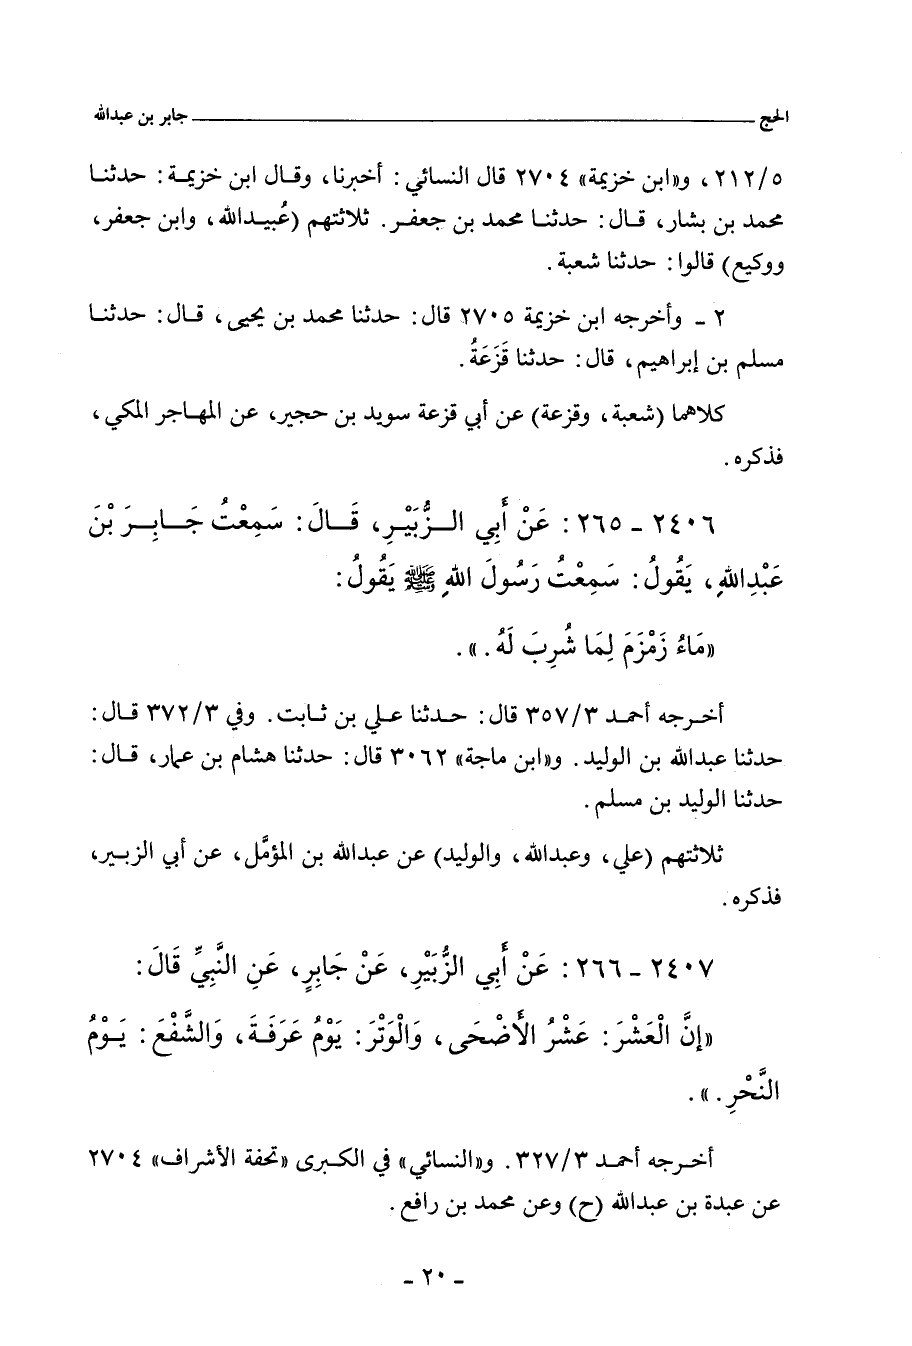 الحج ـــــــــــــــــــــــــــــ جابر بن عبدالله
٢١٢/٥، و«ابن خزيمة» ٢٧٠٤ قال النسائي: أخبرنا، وقال ابن خزيمة: حدثنا
محمد بن بشار، قال: حدثنا محمد بن جعفر. ثلاثتهم (عُبيدالله، وابن جعفر،
ووكيع) قالوا: حدثنا شعبة.
٢ - وأخرجه ابن خزيمة ٢٧٠٥ قال: حدثنا محمد بن يحيى، قال: حدثنا
مسلم بن إبراهيم، قال: حدثنا قَزَعَةُ.
كلاهما (شعبة، وقزعة) عن أبي قزعة سويد بن حجير، عن المهاجر المكي،
فذكره.
٢٤٠٦ - ٢٦٥: عَنْ أَبِي الزُّبَيْرِ، قَالَ: سَمِعْتُ جَابِرَ بْنَ
عَبْدِاللهِ، يَقُولُ: سَمِعْتُ رَسُولَ اللهِ ﷺ يَقُولُ:
«مَاءُ زَمْزَمَ لِمَا شُرِبَ لَهُ.».
أخرجه أحمد ٣٥٧/٣ قال: حدثنا علي بن ثابت. وفي ٣٧٢/٣ قال:
حدثنا عبدالله بن الوليد. و«ابن ماجة» ٣٠٦٢ قال: حدثنا هشام بن عمار، قال:
حدثنا الوليد بن مسلم.
ثلاثتهم (علي، وعبدالله، والوليد) عن عبدالله بن المؤمَّل، عن أبي الزبير،
فذكره.
٢٤٠٧ - ٢٦٦: عَنْ أَبِي الزُّبَيْرِ، عَنْ جَابِرٍ، عَنِ النَّبِيِّ قَالَ:
«إِنَّ الْعَشْرَ: عَشْرُ الأَضْحَى، وَالْوَتْرَ: يَوْمُ عَرَفَةَ، وَالشَّفْعَ: يَوْمُ
النَّحْرِ.».
أخرجه أحمد ٣٢٧/٣. و«النسائي» في الكبرى «تحفة الأشراف» ٢٧٠٤
عن عبدة بن عبدالله (ح) وعن محمد بن رافع.
- ٢٠ -